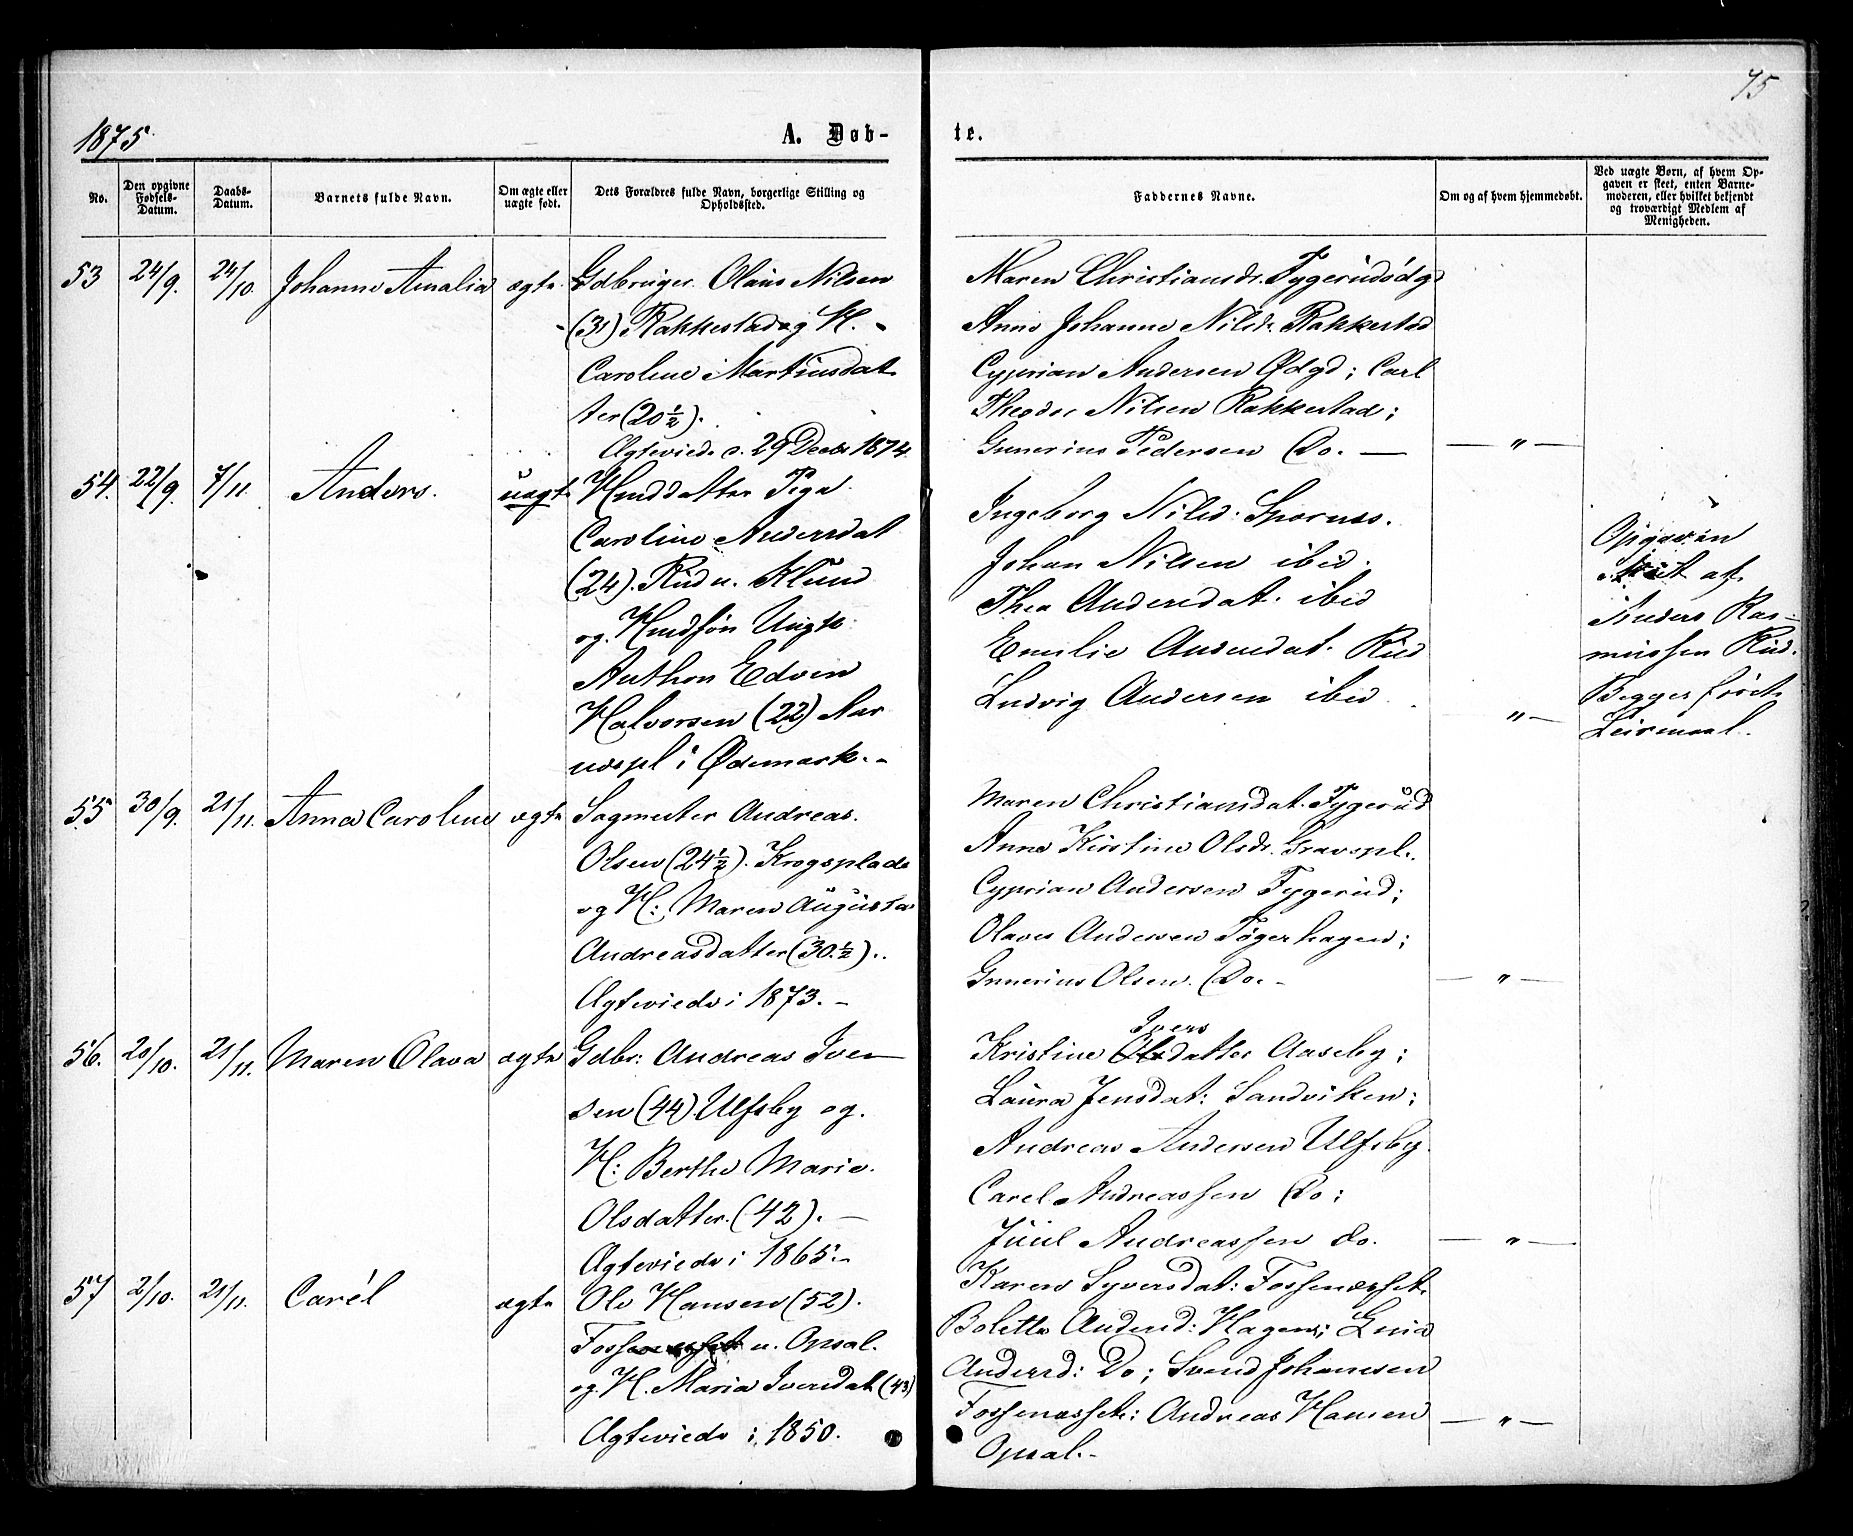 75
1875
A. Døb-
te.
No.
Den opgivne Fødsels-Datum.
Daabs-Datum.
Barnets fulde Navn.
Om ægte eller uægte født.
Dets Forældres fulde Navn, borgerlige Stilling og Opholdssted.
Faddernes Navne.
Om og af hvem hjemmedøbt.
Ved uægte Børn, af hvem Op-
gaven er skeet, enten Barne-
moderen, eller hvilket bekjendt
og troværdigt Medlem af
Menigheden.
53 24/9. 24/10. Johanne Amalia ægte.
Gdbruger Olaus Nilsen
(31) Rakkestad og H.
Caroline Martinsdat
ter (20½).
Ægteviede d. 29 Decbr 1874
Maren Christiansdr. Tygerudsødgd
Anne Johanne Nilsdr. Rakkestad
Cyprian Andersen Ødgd; Carl
Theodor Nilsen Rakkestad;
Gunerius Pedersen Do. — „ —
54. 22/9. 7/11. Anders. uægte
Huusdatter Pige
Caroline Andersdat
(24). Rud u. Klund
og. Huusføn Ungk.
Anthon Edvin
Halvorsen (22)
udspl i Ødemark.-
Ingeborg Nilsd.
Johan Nilsen ibid.
Thea Andersdat. ibid
Emilie Andersdat. Rud
Ludvig Andersen ibid
„ —
Opgaven
skeet af
Anders Ras-
mussen Rud.
Begges første
Leirmaal.
55 30/9. 21/11. Anna Caroline ægte
Sagmester Andreas.
Olsen (24½). Krogsplads
og H: Maren Augusta
Andreasdatter (30.½)..
Ægteviede i 1873.-
Maren Christiansdat. Tygerud
Anne Kirstine Olsdr. Gravspl.
Cyprian Andersen Tygerud;
Olaves Andersen Tøgerhagen;
Gunerius Olsen. Do.- — „ —
56. 20/10. 21/11. Maren Olava ægte
Gdbr: Andreas Iver
sen (44) Ulfsby og.
H: Berthe Marie.
Olsdatter. (42). —
Ægteviede i 1865.-
Ivers
Kristine datter Aaseby;
Laura Jensdat: Sandviken;
Andreas Andersen Ulfsby.
Carel Andreassen Do;
Juul Andreassen do. — „ —
57 2/10. 21/11. Carél ægte
Ole Hansen (52).
u. Opsal.
og. H. Maria Iversdat (43)
Ægteviede i 1850.
Karen Syversdat: Fossenæsset.
Bolette Andersd: Hagen;
Andersd: Do; Svend Johannesen
Fossenæsset: Andreas Hansen — „ —
Opsal.-